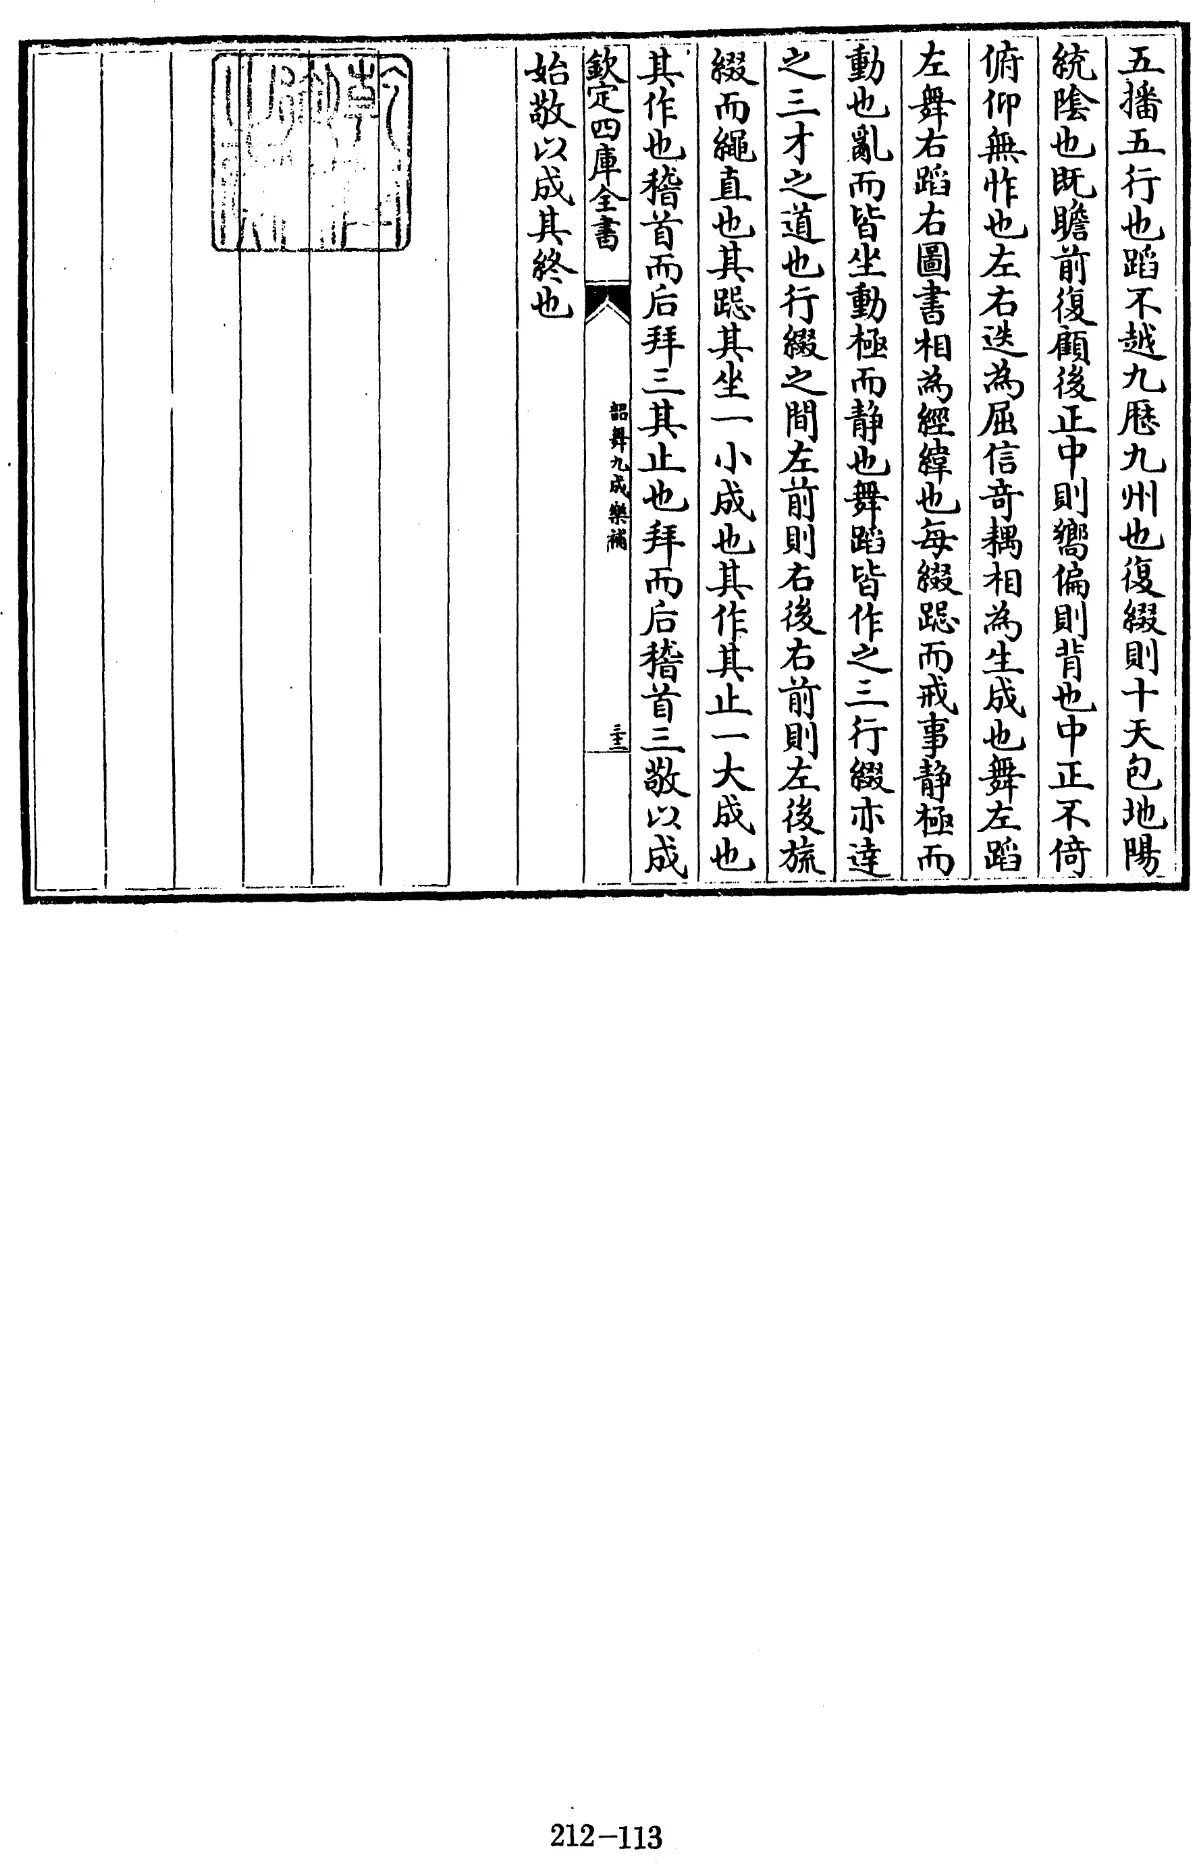 五播五行也蹈不越九歷九州也復綴則十天包地陽
統陰也既瞻前復顧後正中則嚮偏則背也中正不倚
俯仰無怍也左右迭為屈信奇耦相為生成也舞左蹈
左舞右蹈右圖書相為經緯也每綴跽而戒事静極而
動也亂而皆坐動極而静也舞蹈皆作之三行綴亦達
之三才之道也行綴之間左前則右後右前則左後旒
綴而繩直也其跽其坐一小成也其作其止一大成也
其作也稽首而后拜三其止也拜而后稽首三敬以成
欽定四庫全書
韶舞九成樂補
始敬以成其終也
212-113